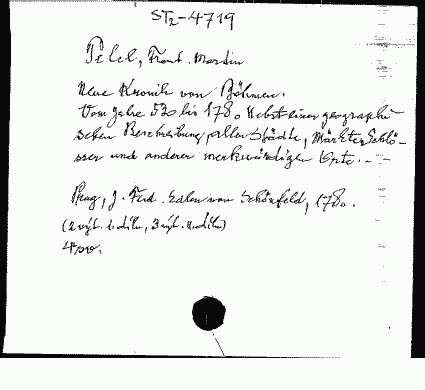 ST2-4719
Pelcl, Frant. Martin
Neue Kronik von Böhmen.
Vom Jahre 530 bis 1780. Nebst einer geographi-
schen Beschreibung aller Städte, Märkte, Schlö-
sser und anderer merkwürdigen Orte. --
Prag, J. Ferd. Edler von Schönfeld, 1780.
(2 výt. 1. dílu, 3 výt. II. dílu)
4 sv.